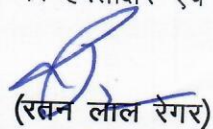 (रतन लाल रेगर)